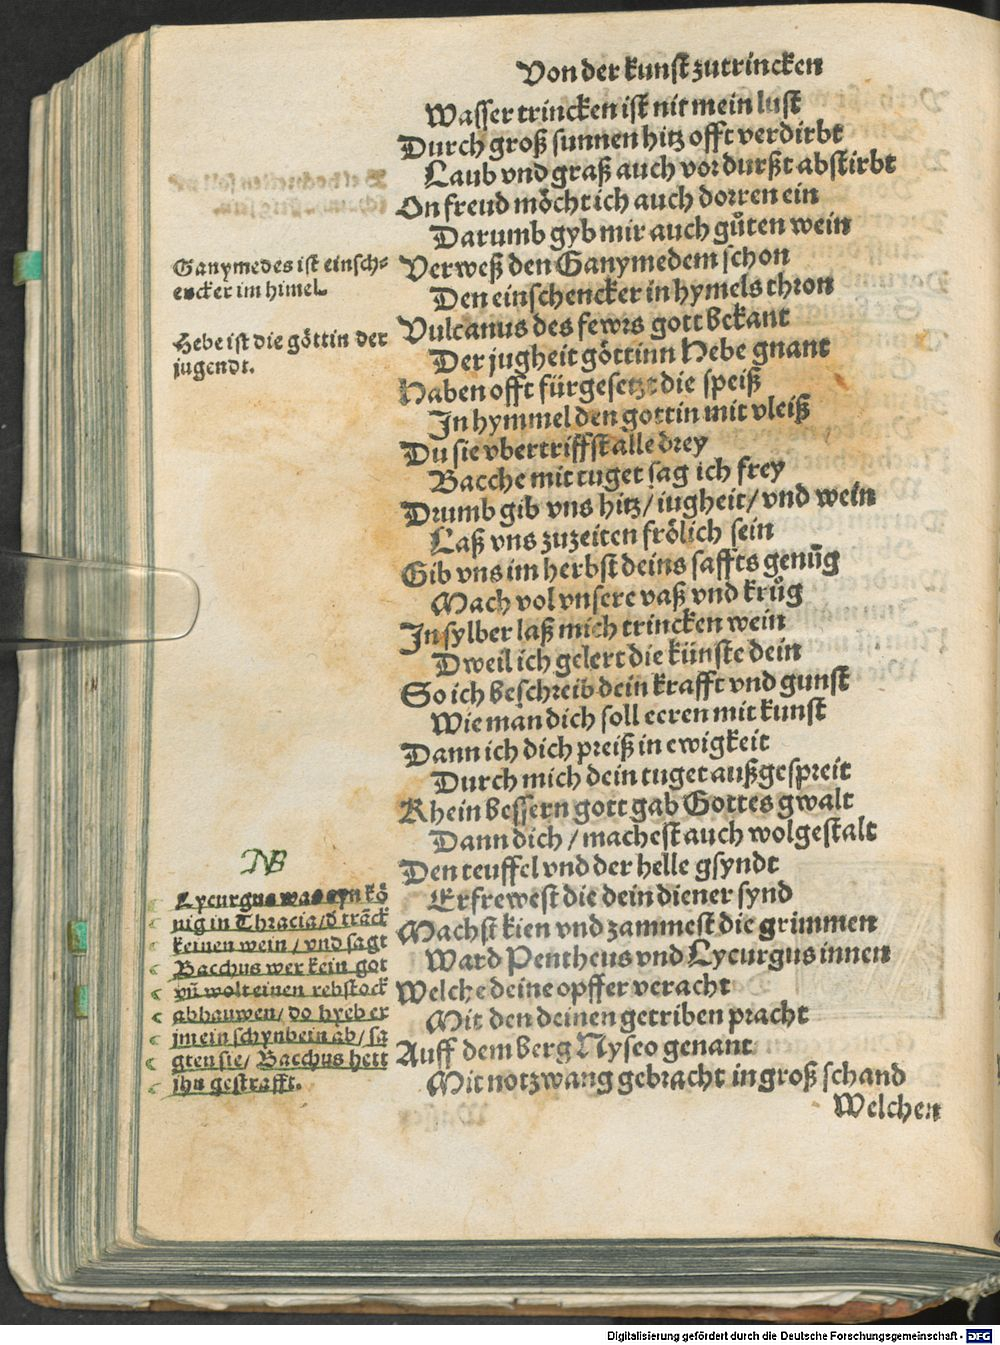 Von der kunst zutrincken
Wasser trincken ist nit mein lust
Durch groß sunnen hitz offt verdirbt
Laub vnd graß auch vor durßt abstirbt
On freud möcht ich auch dorren ein
Darumb gyb mir auch gůten wein
Ganymedes ist einsch=
encker im himel.
Verweß den Ganymedem schon
Den einschencker in hymels thron
Hebe ist die göttin der
jugendt.
Vulcanus des fewrs gott bekant
Der jugheit göttinn Hebe gnant
Haben offt fürgesetzt die speiß
In hymmel den gottin mit vleiß
Du sie vbertriffst alle drey
Bacche mit tuget sag ich frey
Drumb gib vns hitz / iugheit / vnd wein
Laß vns zuzeiten frölich sein
Gib vns im herbst deins saffts genůg
Mach vol vnsere vaß vnd krůg
In sylber laß mich trincken wein
Dweil ich gelert die künste dein
So ich beschreib dein krafft vnd gunst
Wie man dich soll eeren mit kunst
Dann ich dich preiß in ewigkeit
Durch mich dein tuget außgespreit
Khein bessern gott gab Gottes gwalt
Dann dich / machest auch wolgestalt
Den teuffel vnd der helle gsyndt
Erfrewest die dein diener synd
Machst kien vnd zammest die grimmen
Ward Pentheus vnd Lycurgus innen
Welche deine opffer veracht
Mit den deinen getriben pracht
Auff dem berg Nyseo genant
Mit notzwang gebracht in groß schand
NB
Lycurgus was eyn kö
nig in Thracia / d tranck
keinen wein / vnd sagt
Bacchus wer kein got
vñ wolt einen rebstock
abhauwen / do hyeb er
jm ein schynbein ab / sa
gten sie / Bacchus hett
jhn gestrafft.
Welchen
Digitalisierung gefördert durch die Deutsche Forschungsgemeinschaft - DFG